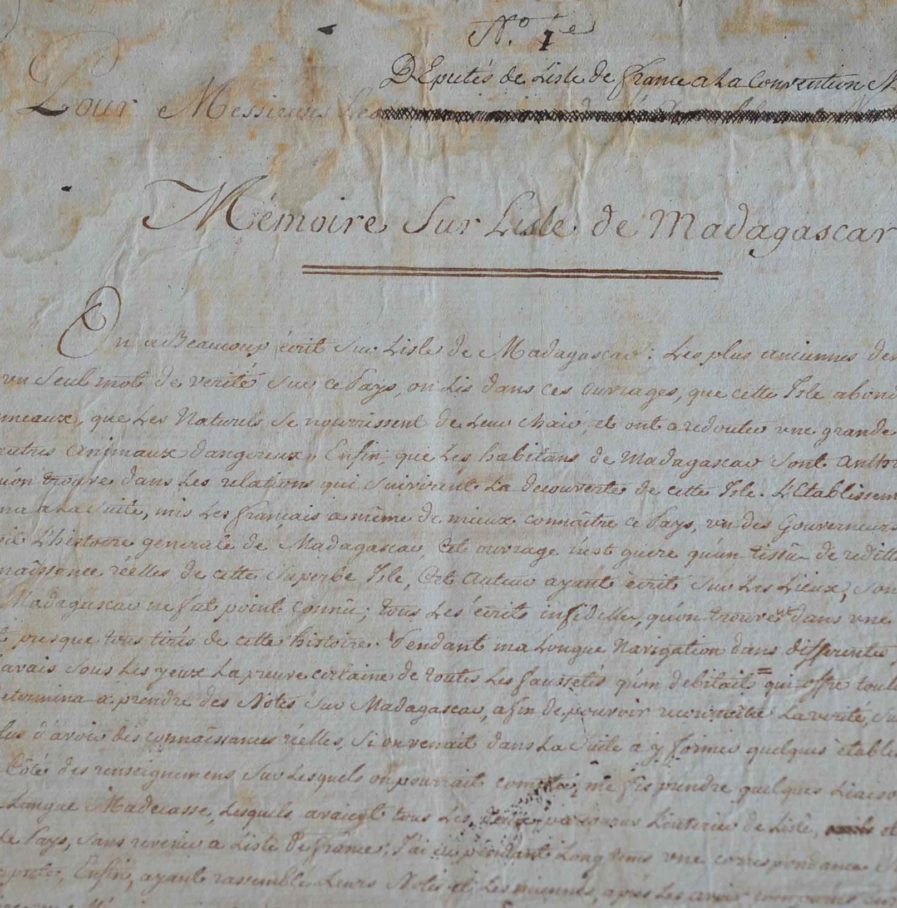 N.º 1.e
DEputés de Lisle de france a La Convention N
Pour Messieurs Les
Mémoire Sur Lisle de Madagascar
On a Beaucoup écrit Sur Lisle de Madagascar: Les plus anciennes
un Seul mot de verité Sur ce Pays, on Lis dans ces ouvrages, que cette Isle abond
que Les Naturels Se nourrissent de Leur Chair, et ont a redouter une grande
autres animaux dangereux; Enfin, que Les habitans de Madagascar Sont
dans Les relations qui Suivirent La decouverte de cette Isle. L'Etablissem
a La Suite, mis Les français a même de mieux connaître ce Pays, un des Gouverneurs
L'histoire generale de Madagascar, Cet ouvrage n'est guere qu'un tissû de
naissance réelles de cette Superbe Isle, Cet Auteur ayant écrit Sur Les Lieux, Son
Madagascar ne fut point connu; tous Les écrits infidelles, qu'on trouve dans une
presque tous tirés de cette histoire. Pendant ma Longue Navigation dans differentes
avais Sous Les yeux La preuve certaine de toutes Les faussetés qu'on debitait qui offre
etermina a prendre des Notes Sur Madagascar, afin de pouvoir reconnoître La verité,
d'avoir des connaissances réelles, Si on venait dans La Suite a y former quelques établis
Côté des renseignemens Sur Lesquels on pourrait compter, me fis prendre quelques Liaiso
Langue Madecasse, Lesquels avaient tous Les de Lisle,
Le Pays, Sans revenir a Lisle De france; J'ai eu pendant Long tems une correspondance
Enfin, ayant rassemblé Leurs Notes et Les miennes, après Les avoir